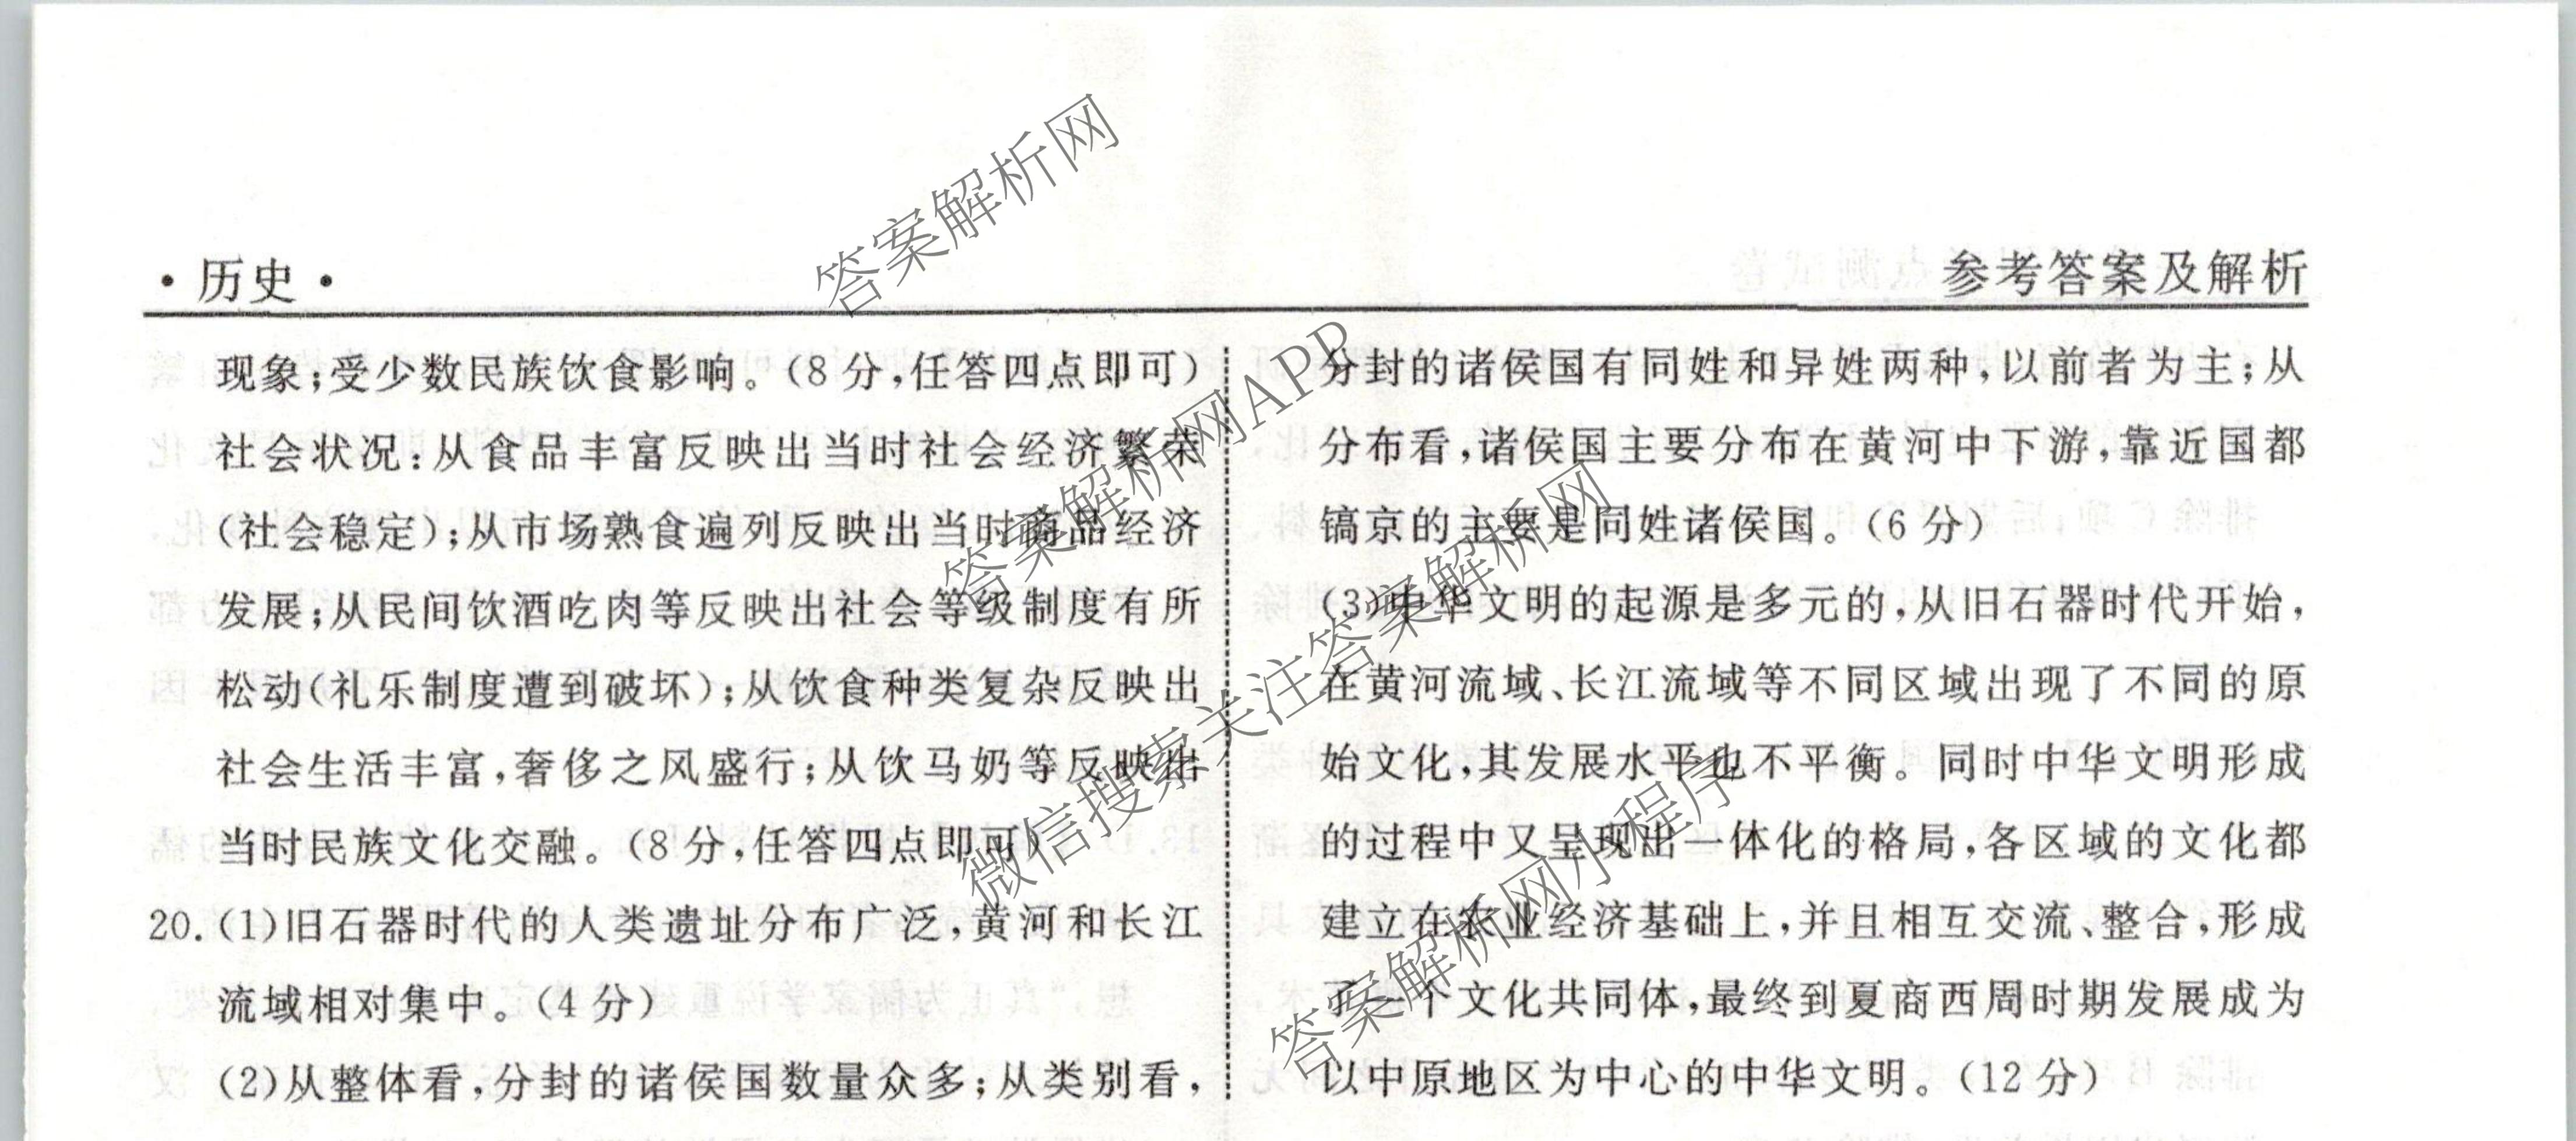 ·历史·
参考答案及解析
现象;受少数民族饮食影响。(8分,任答四点即可)
社会状况:从食品丰富反映出当时社会经济繁荣
(社会稳定);从市场熟食遍列反映出当时商品经济
发展;从民间饮酒吃肉等反映出社会等级制度有所
松动(礼乐制度遭到破坏);从饮食种类复杂反映出
社会生活丰富,奢侈之风盛行;从饮马奶等反映出
当时民族文化交融。(8分,任答四点即可)
20.(1)旧石器时代的人类遗址分布广泛,黄河和长江
流域相对集中。(4分)
(2)从整体看,分封的诸侯国数量众多;从类别看,
分封的诸侯国有同姓和异姓两种,以前者为主;从
分布看,诸侯国主要分布在黄河中下游,靠近国都
镐京的主要是同姓诸侯国。(6分)
(3)中华文明的起源是多元的,从旧石器时代开始,
在黄河流域、长江流域等不同区域出现了不同的原
始文化,其发展水平也不平衡。同时中华文明形成
的过程中又呈现出一体化的格局,各区域的文化都
建立在农业经济基础上,并且相互交流、整合,形成
了一个文化共同体,最终到夏商西周时期发展成为
以中原地区为中心的中华文明。(12分)
答案解析网
答案解析网APP
微信搜索关注答案解析网
答案解析网小程序